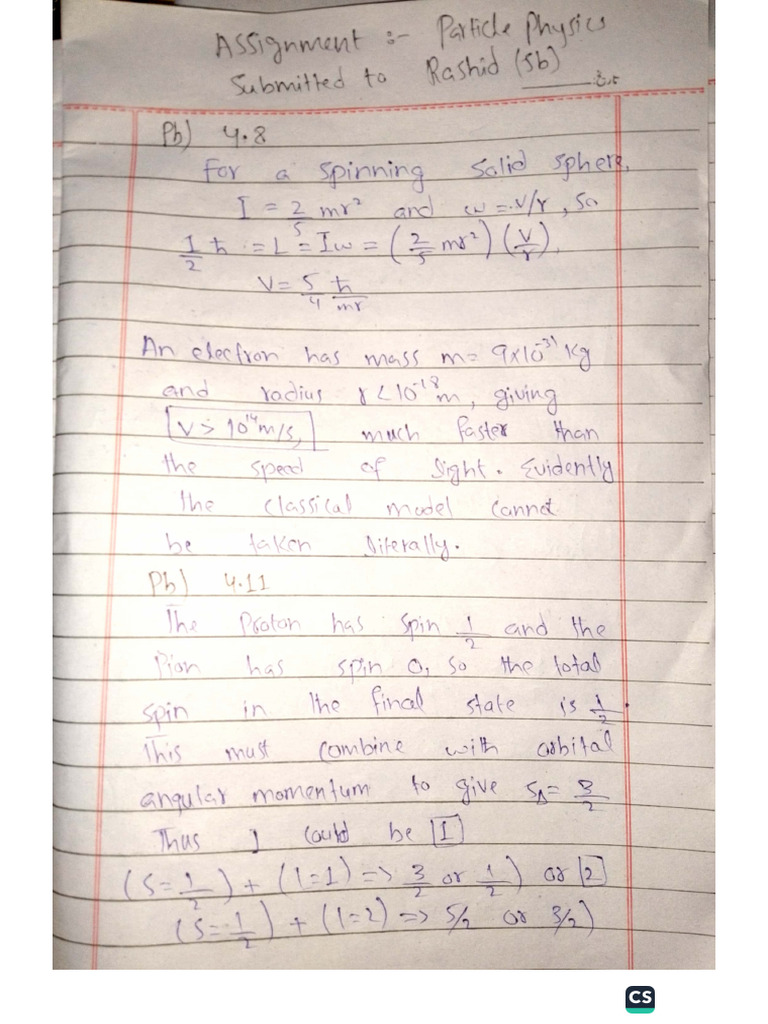 Assignment :- Particle Physics
Submitted to Rashid (Sb)
Pb) 4.8
For a spinning solid sphere,
I = 2/5 mr² and ω = v/r, so
1/2 ħ = L = Iω = (2/5 mr²) (v/r).
V = 5/4 ħ/mr
An electron has mass m = 9×10⁻³¹ kg
and radius r < 10⁻¹⁸ m, giving
V > 10¹⁴ m/s, much faster than
the speed of light. Evidently
the classical model cannot
be taken literally.
Pb) 4.11
The Proton has spin 1/2 and the
Pion has spin 0, so the total
spin in the final state is 1/2.
This must combine with orbital
angular momentum to give SΔ = 3/2
Thus l could be 1
(S = 1/2) + (l = 1) => 3/2 or 1/2) or 2
(S = 1/2) + (l = 2) => 5/2 or 3/2)
CS